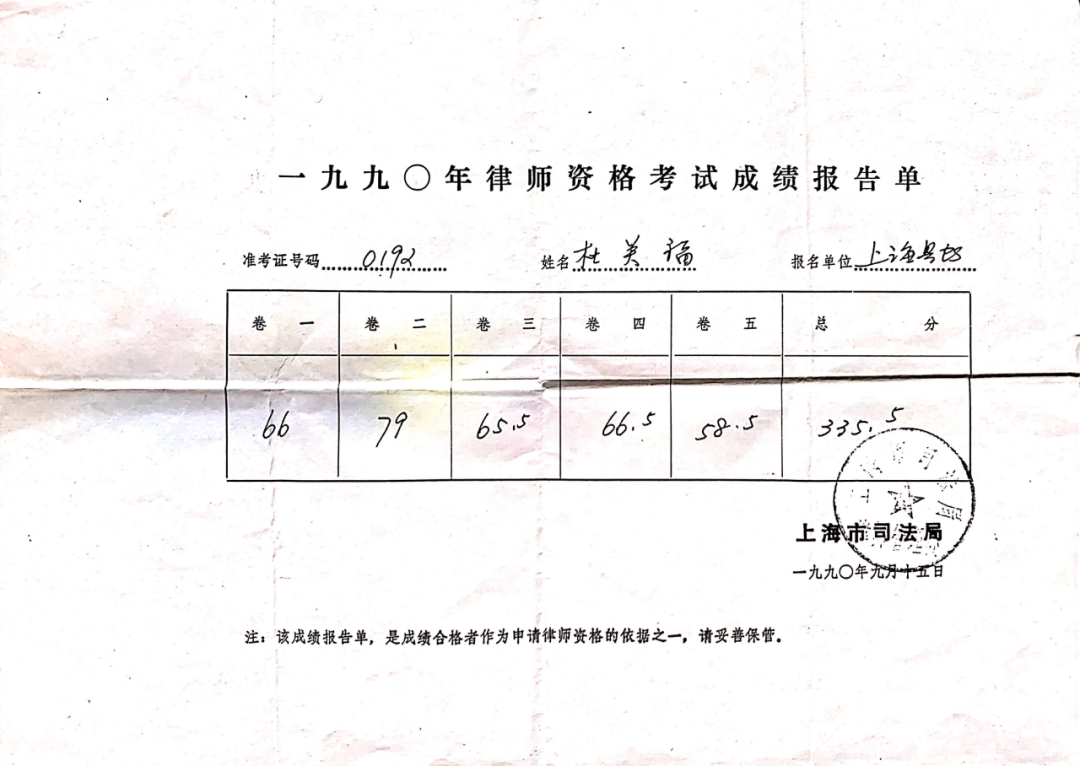 一九九〇年律师资格考试成绩报告单
准考证号码 0192 姓名 杜美福 报名单位 上海县
卷一 卷二 卷三 卷四 卷五 总分
66 79 65.5 66.5 58.5 335.5
上海市司法局
一九九〇年九月十五日
注：该成绩报告单，是成绩合格者作为申请律师资格的依据之一，请妥善保管。